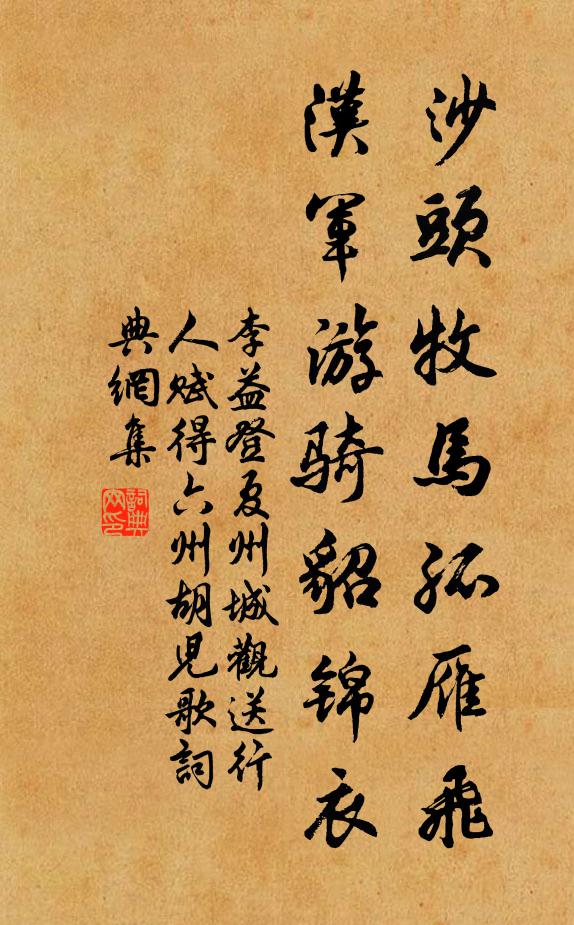 沙頭牧馬孤雁飛
漢軍游騎貂錦衣
李益登夏州城觀送行
人賦得六州胡兒歌詞
典網集
詞典網印